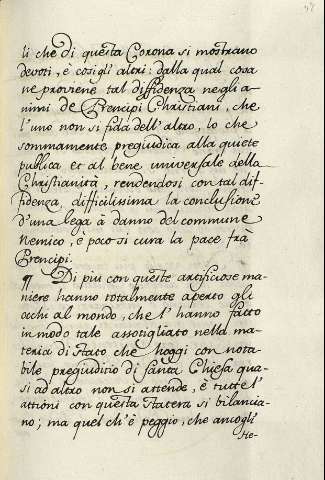 li che di questa Corona si mostrano
devoti, è così gli altri: dalla qual cosa
ne proviene tal diffidenza negli a-
nimi de Prencipi Christiani, che
l'uno non si fida dell'altro, lo che
sommamente pregiudica alla quiete
publica et al bene universale della
Christianità, rendendosi con tal dif-
fidenza, difficilissima la conclusione
d'una lega à danno del commune
nemico, e poco si cura la pace frà
Prencipi.
¶ Di più con queste artificiose ma-
niere hanno totalmente aperto gli
occhi al mondo, che l'hanno fatto
in modo tale assotigliato nella ma-
teria di stato che hoggi con nota-
bile pregiuditio di santa Chiesa qua-
si ad altro non si attende, è tutte l'
attioni con questa statera si bilancia-
no; ma quel ch'è peggio, che ancogl'
He-